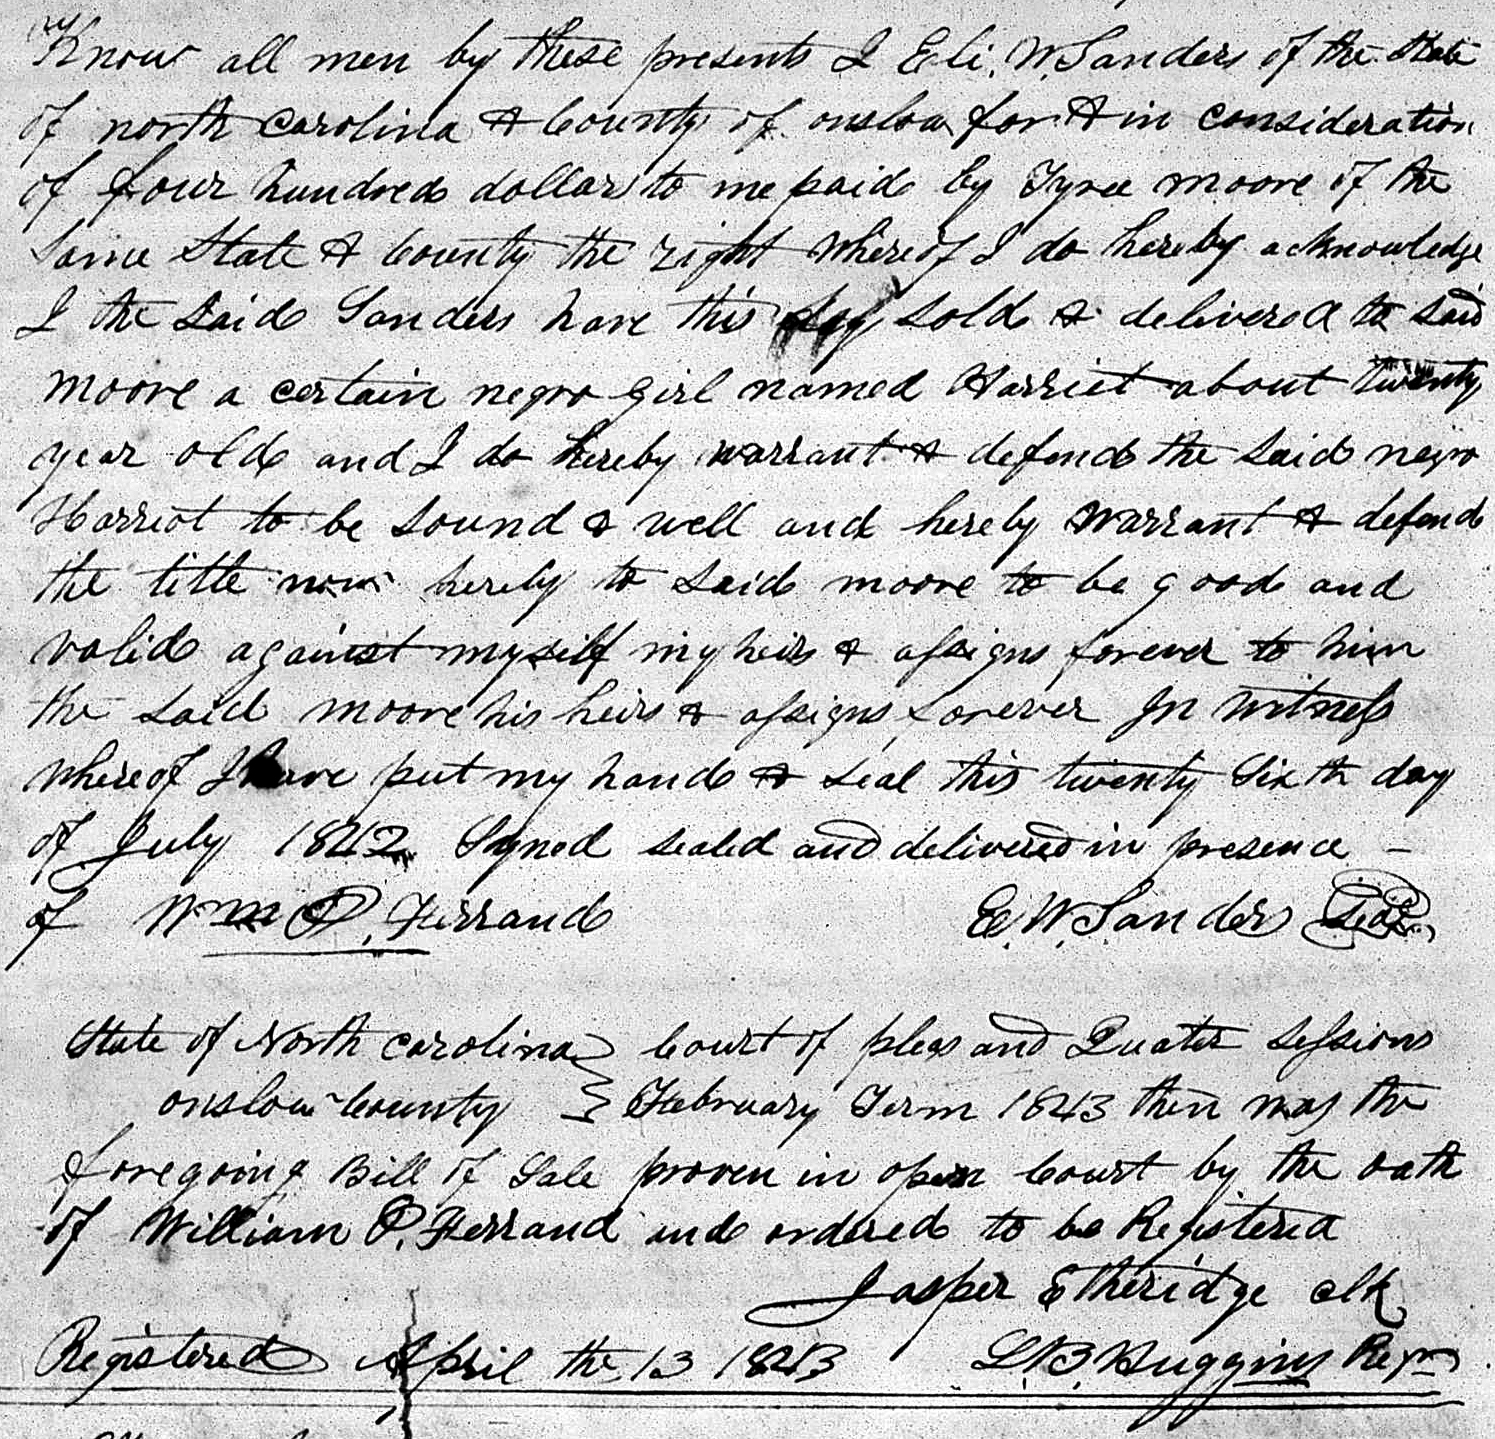 Know all men by these presents I Eli. W. Sanders of the State
of north Carolina & County of onslow for & in consideration
of four hundred dollars to me paid by Tyree moore of the
Same State & County the right whereof I do hereby acknowledge
I the Said Sanders have this day sold & delivered to said
moore a certain negro girl named Harriet about twenty
year old and I do hereby warrant & defend the said negro
Harriot to be sound & well and hereby warrant & defend
the title now hereby to said moore to be good and
valid against myself my heirs & assigns forever to him
the said moore his heirs & assigns forever In witness
whereof I have put my hand & seal this twenty Sixth day
of July 1842 Signed sealed and delivered in presence
of Wm P. Ferrand E. W. Sander Seal
State of North Carolina } Court of pleas and Quater sessions
onslow County } February Term 1843 then was the
foregoing Bill of Sale proven in open Court by the oath
of William P. Ferrand and ordered to be Registered
Jasper Etheridge clk
Registered April the 13 1843 L. B. Huggins Regr